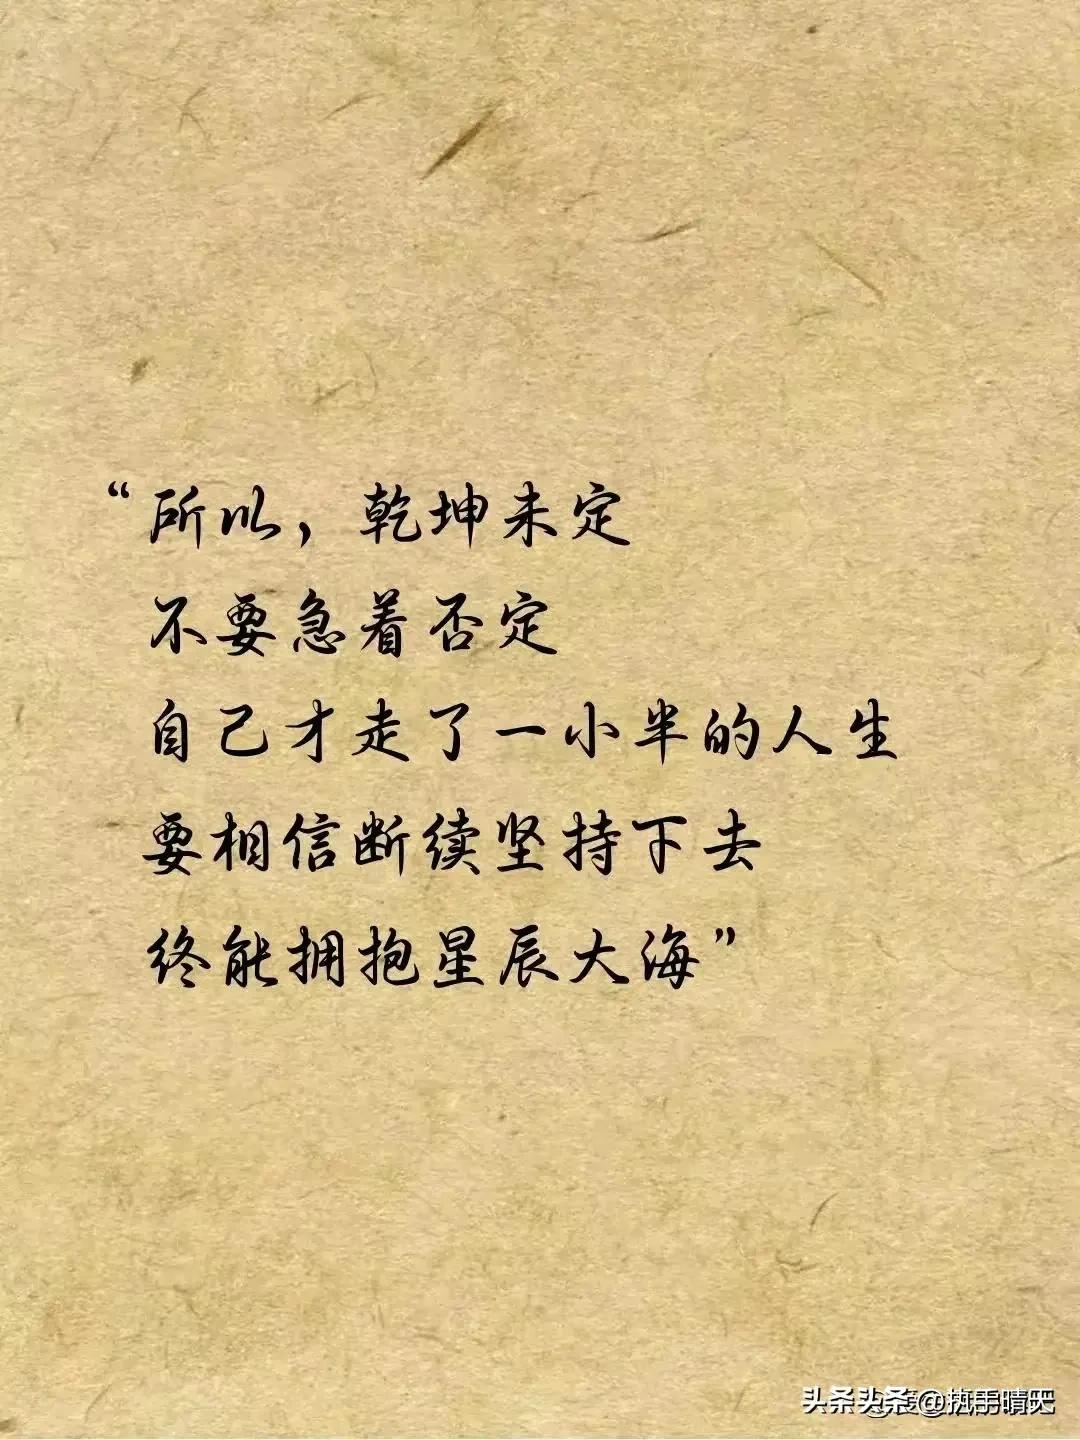 “所以，乾坤未定
不要急着否定
自己才走了一小半的人生
要相信断续坚持下去
终能拥抱星辰大海”
头条 @执手晴天